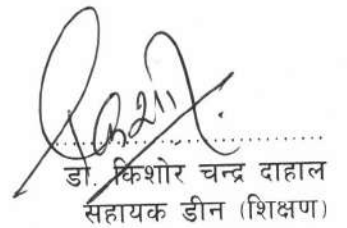 डा. किशोर चन्द्र दाहाल
सहायक डीन (शिक्षण)